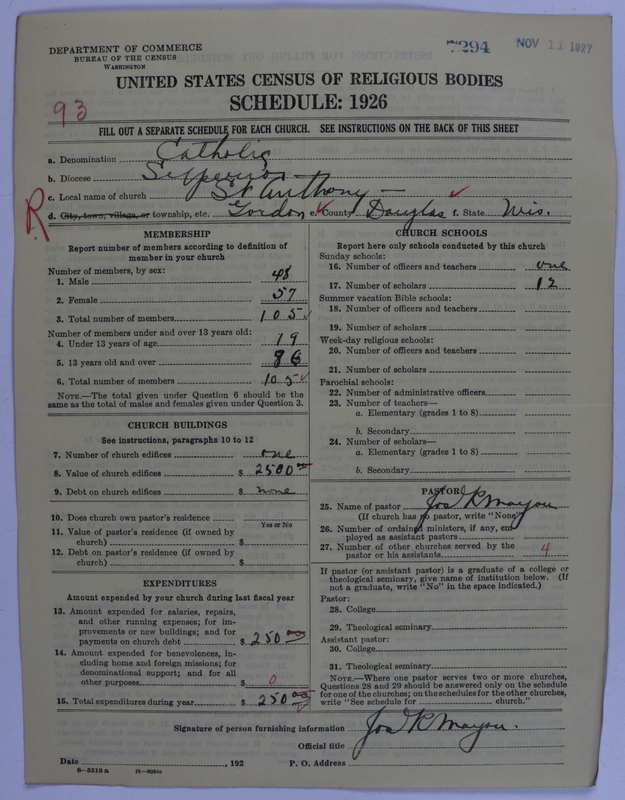 DEPARTMENT OF COMMERCE
BUREAU OF THE CENSUS
WASHINGTON
7294 NOV 11 1927
UNITED STATES CENSUS OF RELIGIOUS BODIES
SCHEDULE: 1926
93
FILL OUT A SEPARATE SCHEDULE FOR EACH CHURCH. SEE INSTRUCTIONS ON THE BACK OF THIS SHEET
a. Denomination Catholic
b. Diocese Superior
c. Local name of church St Anthony
R
d. City, town, village, or township, etc. Gordon e. County Douglas f. State Wis.
MEMBERSHIP
Report number of members according to definition of
member in your church
Number of members, by sex:
1. Male 48
2. Female 57
3. Total number of members 105
Number of members under and over 13 years old:
4. Under 13 years of age 19
5. 13 years old and over 86
6. Total number of members 105
NOTE.—The total given under Question 6 should be
same as the total of males and females given under Question 3.
CHURCH BUILDINGS
See instructions, paragraphs 10 to 12
7. Number of church edifices one
8. Value of church edifices $ 2500 00
9. Debt on church edifices $ none
10. Does church own pastor's residence
Yes or No
11. Value of pastor's residence (if owned by
church) $
12. Debt on pastor's residence (if owned by
church) $
EXPENDITURES
Amount expended by your church during last fiscal year
13. Amount expended for salaries, repairs,
and other running expenses; for im-
provements or new buildings; and for
payments on church debt $ 250 00
14. Amount expended for benevolences, in-
cluding home and foreign missions; for
denominational support; and for all
other purposes $ 0
15. Total expenditures during year $ 250 00
CHURCH SCHOOLS
Report here only schools conducted by this church
Sunday schools:
16. Number of officers and teachers one
17. Number of scholars 12
Summer vacation Bible schools:
18. Number of officers and teachers
19. Number of scholars
Week-day religious schools:
20. Number of officers and teachers
21. Number of scholars
Parochial schools:
22. Number of administrative officers
23. Number of teachers—
a. Elementary (grades 1 to 8)
b. Secondary
24. Number of scholars—
a. Elementary (grades 1 to 8)
b. Secondary
PASTOR
25. Name of pastor Jos R Mayou
(If church has no pastor, write "None")
26. Number of ordained ministers, if any, em-
ployed as assistant pastors
27. Number of other churches served by the
pastor or his assistants 4
If pastor (or assistant pastor) is a graduate of a college or
theological seminary, give name of institution below. (If
not a graduate, write "No" in the space indicated.)
Pastor:
28. College
29. Theological seminary
Assistant pastor:
30. College
31. Theological seminary
NOTE.—Where one pastor serves two or more churches,
Questions 28 and 29 should be answered only on the schedule
for one of the churches; on the schedules for the other churches,
write "See schedule for church."
Signature of person furnishing information Jos R Mayou.
Official title
Date , 192 P. O. Address
8—5518a 11—9034a